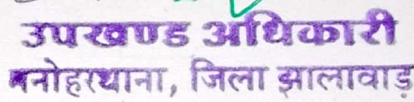 उपखण्ड अधिकारी
मनोहरथाना, जिला झालावाड़